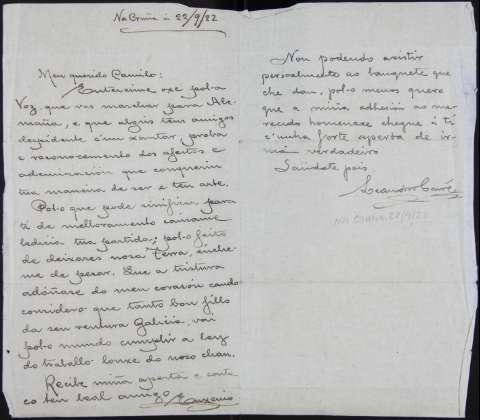 Na Cruña á 22/9/22
Meu querido Camilo:
Entereime oxe pol-a
Voz, que vas marchar para Ale-
maña, e que algús teus amigos
despídente c'un xantar, proba
e reconocemento dos afeitos e
ademiración que conqueriu
tua maneira de ser e teu arte.
Pol-o que pode sinificar para
tí de melloramento
ledicia tua partida; pol-o feito
de deixares nosa Terra, énche-
me de pesar. Que a tristura
adóñase do meu corazón cando
considero que tanto bon fillo
da sen ventura Galicia, vai
pol-o mundo cumplir a ley
do traballo lonxe do noso chan.
Recibe miña aperta e conta
co teu leal amigo
Non podendo asistir
persoalmente ao banquete que
che dan, pol-o menos quero
que a miña adhesión ao me-
recido homenaxe chegue á tí
c'unha forte aperta de ir-
mán verdadeiro
Saúdate pois
Leandro Carré
Na Cruña, 22/9/22